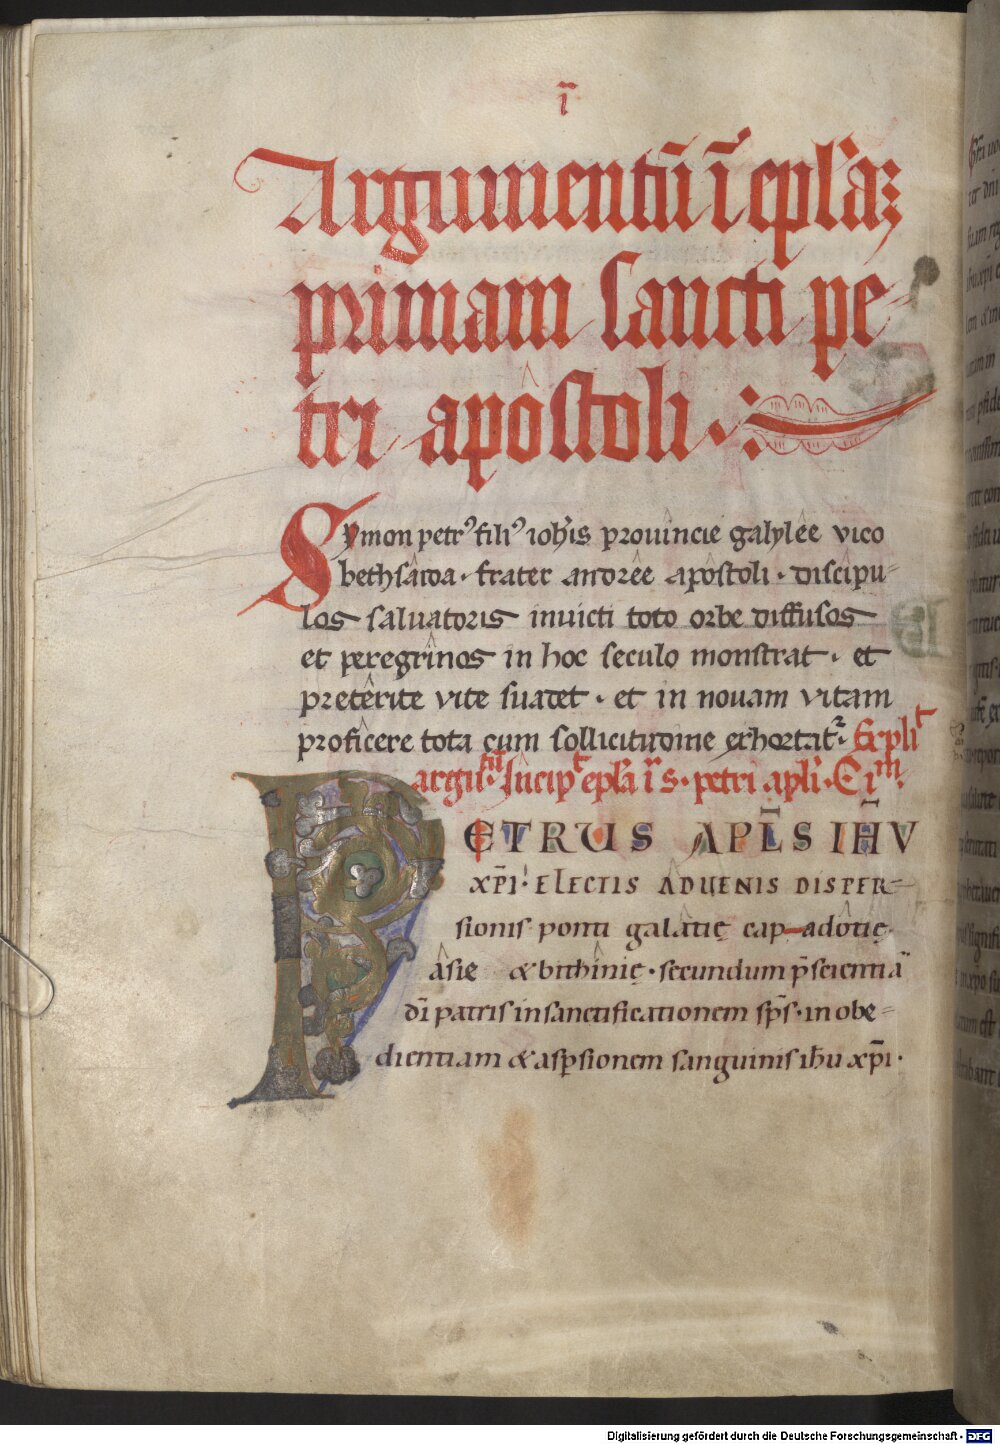 ı̄
Argumentū ī epl'aꝝ
primam sancti pe-
tri apostoli ·:
Symon petrꝰ filiꝰ ioh'is prouincie galylee vico
bethsaida · frater andree apostoli · discipu-
los saluatoris inuicti toto orbe diffusos
et peregrinos in hoc seculo monstrat · et
preterite vite suadet · et in nouam vitam
proficere tota cum sollicitudine exhortat᷑ · Explit
argum̄tū · Incipt epl'a ī s · petri apl'i · C im ·
PETRUS APL̄S IH̄V
xp̄i · ELECTIS ADUENIS DISPER-
sionis ponti galatię cap-adotię
asie & bithinię · secundum p̄scientiā
dī patris in sanctificationem sp̄s · in obe-
dientiam & aspsionem sanguinis ihu xp̄i ·
Digitalisierung gefördert durch die Deutsche Forschungsgemeinschaft - DFG